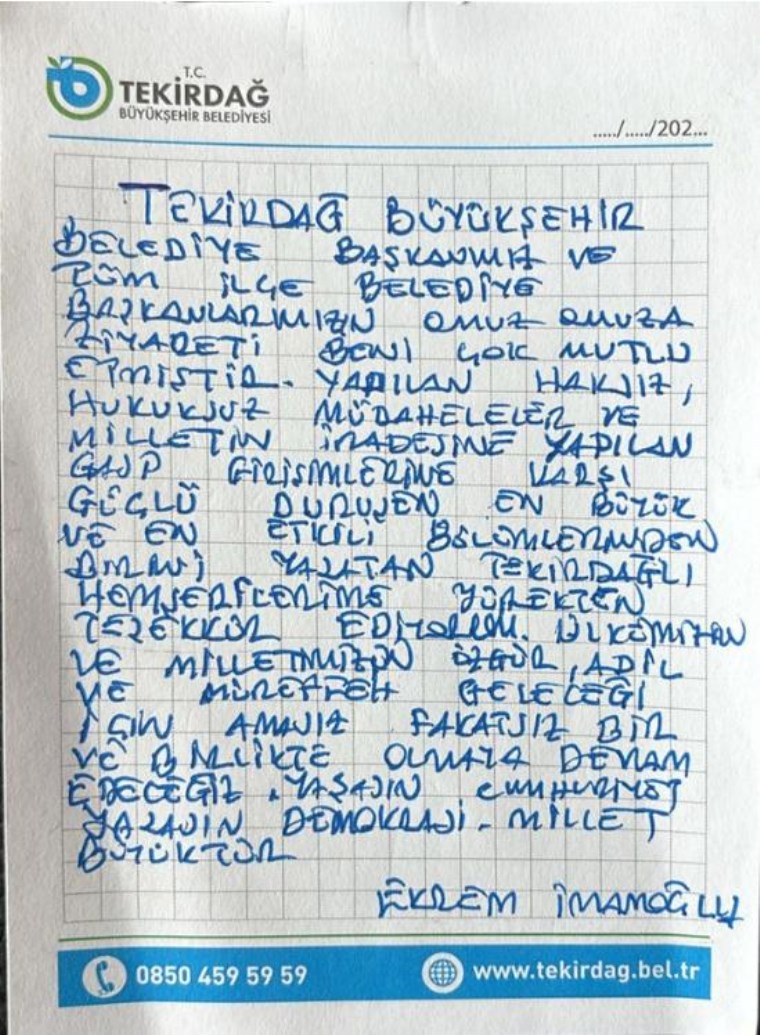 T.C.
TEKİRDAĞ
BÜYÜKŞEHİR BELEDİYESİ
...../...../202...
TEKİRDAĞ BÜYÜKŞEHİR
BELEDİYE BAŞKANIMIZ VE
TÜM İLÇE BELEDİYE
BAŞKANLARIMIZIN OMUZ OMUZA
ZİYARETİ BENİ ÇOK MUTLU
ETMİŞTİR. YAPILAN HAKSIZ,
HUKUKSUZ MÜDAHELELER VE
MİLLETİN İRADESİNE YAPILAN
GASP GİRİŞİMLERİNE KARŞI
GÜÇLÜ DURUŞUN EN BÜYÜK
VE EN ETKİLİ BÖLÜMLERİNDEN
BİRİNİ YAŞATAN TEKİRDAĞLI
HEMŞERİLERİME YÜREKTEN
TEŞEKKÜR EDİYORUM. ÜLKEMİZİN
VE MİLLETİMİZİN ÖZGÜR, ADİL
VE MÜREFFEH GELECEĞİ
İÇİN AMASIZ FAKATSIZ BİR
VE BİRLİKTE OLMAYA DEVAM
EDECEĞİZ. YAŞASIN CUMHURİYET
YAŞASIN DEMOKRASİ. MİLLET
BÜYÜKTÜR
EKREM İMAMOĞLU
0850 459 59 59
www.tekirdag.bel.tr